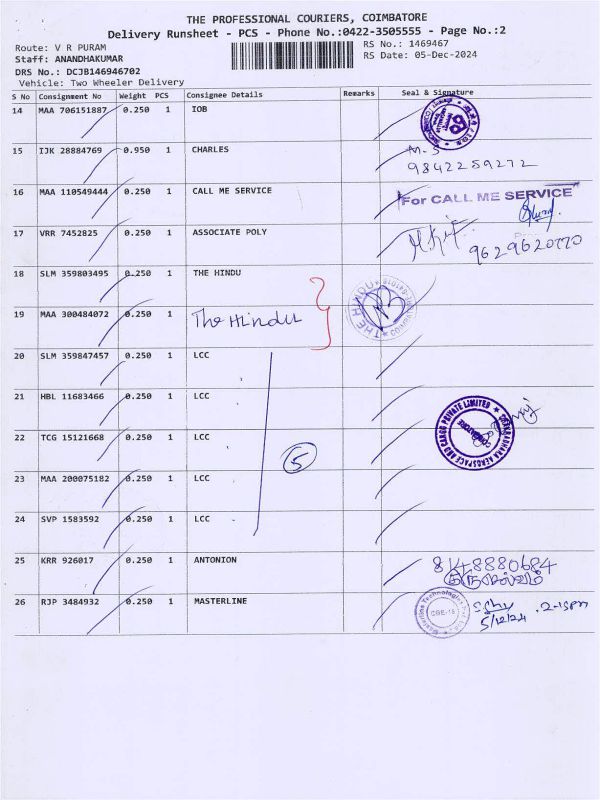 THE PROFESSIONAL COURIERS, COIMBATORE
Delivery Runsheet - PCS - Phone No.:0422-3505555 - Page No.:2
Route: V R PURAM
RS No.: 1469467
Staff: ANANDHAKUMAR
RS Date: 05-Dec-2024
DRS No.: DCJB146946702
Vehicle: Two Wheeler Delivery
S No Consignment No Weight PCS Consignee Details Remarks Seal & Signature
14 MAA 706151887 0.250 1 IOB
15 IJK 28884769 0.950 1 CHARLES M. S
9842259272
16 MAA 110549444 0.250 1 CALL ME SERVICE For CALL ME SERVICE
17 VRR 7452825 0.250 1 ASSOCIATE POLY
9629620770
18 SLM 359803495 0.250 1 THE HINDU
THE HINDU
19 MAA 300484072 0.250 1 The Hindu
20 SLM 359847457 0.250 1 LCC
21 HBL 11683466 0.250 1 LCC
22 TCG 15121668 0.250 1 LCC
AEROSPACE AND CARGO PRIVATE LIMITED
COIMBATORE
5
23 MAA 200075182 0.250 1 LCC
24 SVP 1583592 0.250 1 LCC
25 KRR 926017 0.250 1 ANTONION 8148880684
26 RJP 3484932 0.250 1 MASTERLINE
CBE-18
2-15pm
5/12/24